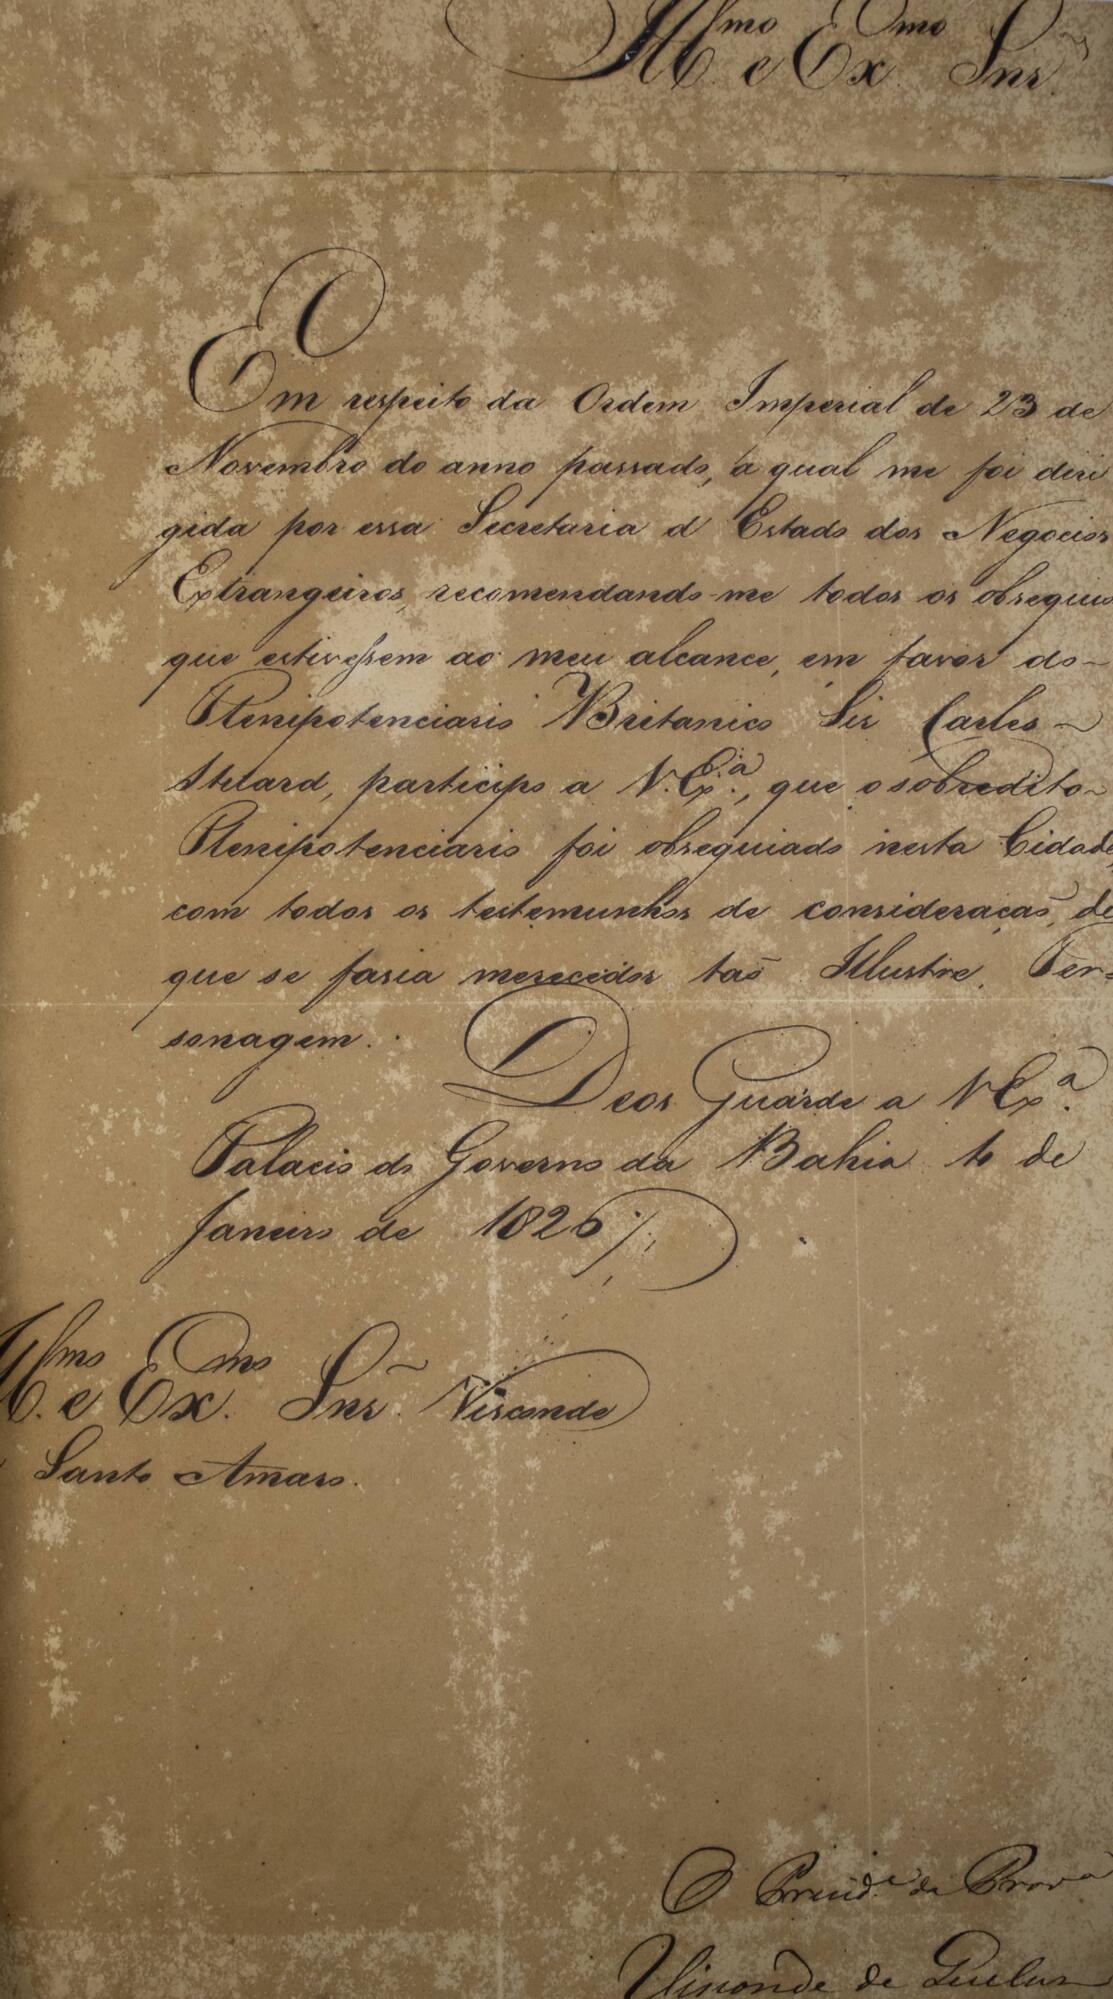 Ill.mo e Ex.mo Snr.
Em respeito da Ordem Imperial de 23 de
Novembro do anno passado, a qual me foi diri
gida por essa Secretaria d'Estado dos Negocios
Extrangeiros, recomendando-me todos os obsequios
que estivessem ao meu alcance, em favor do
Plenipotenciario Britanico Sir Carles
Stuard, participo a V. Ex.ª, que o sobredito
Plenipotenciario foi obsequiado nesta Cidade,
com todos os testemunhos de consideraçaõ, de
que se faria merecedor taõ Illustre Per-
sonagem.
Deos Guarde a V Ex.ª
Palacio do Governo da Bahia de
Janeiro de 1826
Ill.mo e Ex.mo Snr. Visconde
Santo Amaro.
O Presid.e da Prov.a
Visconde de Queluz